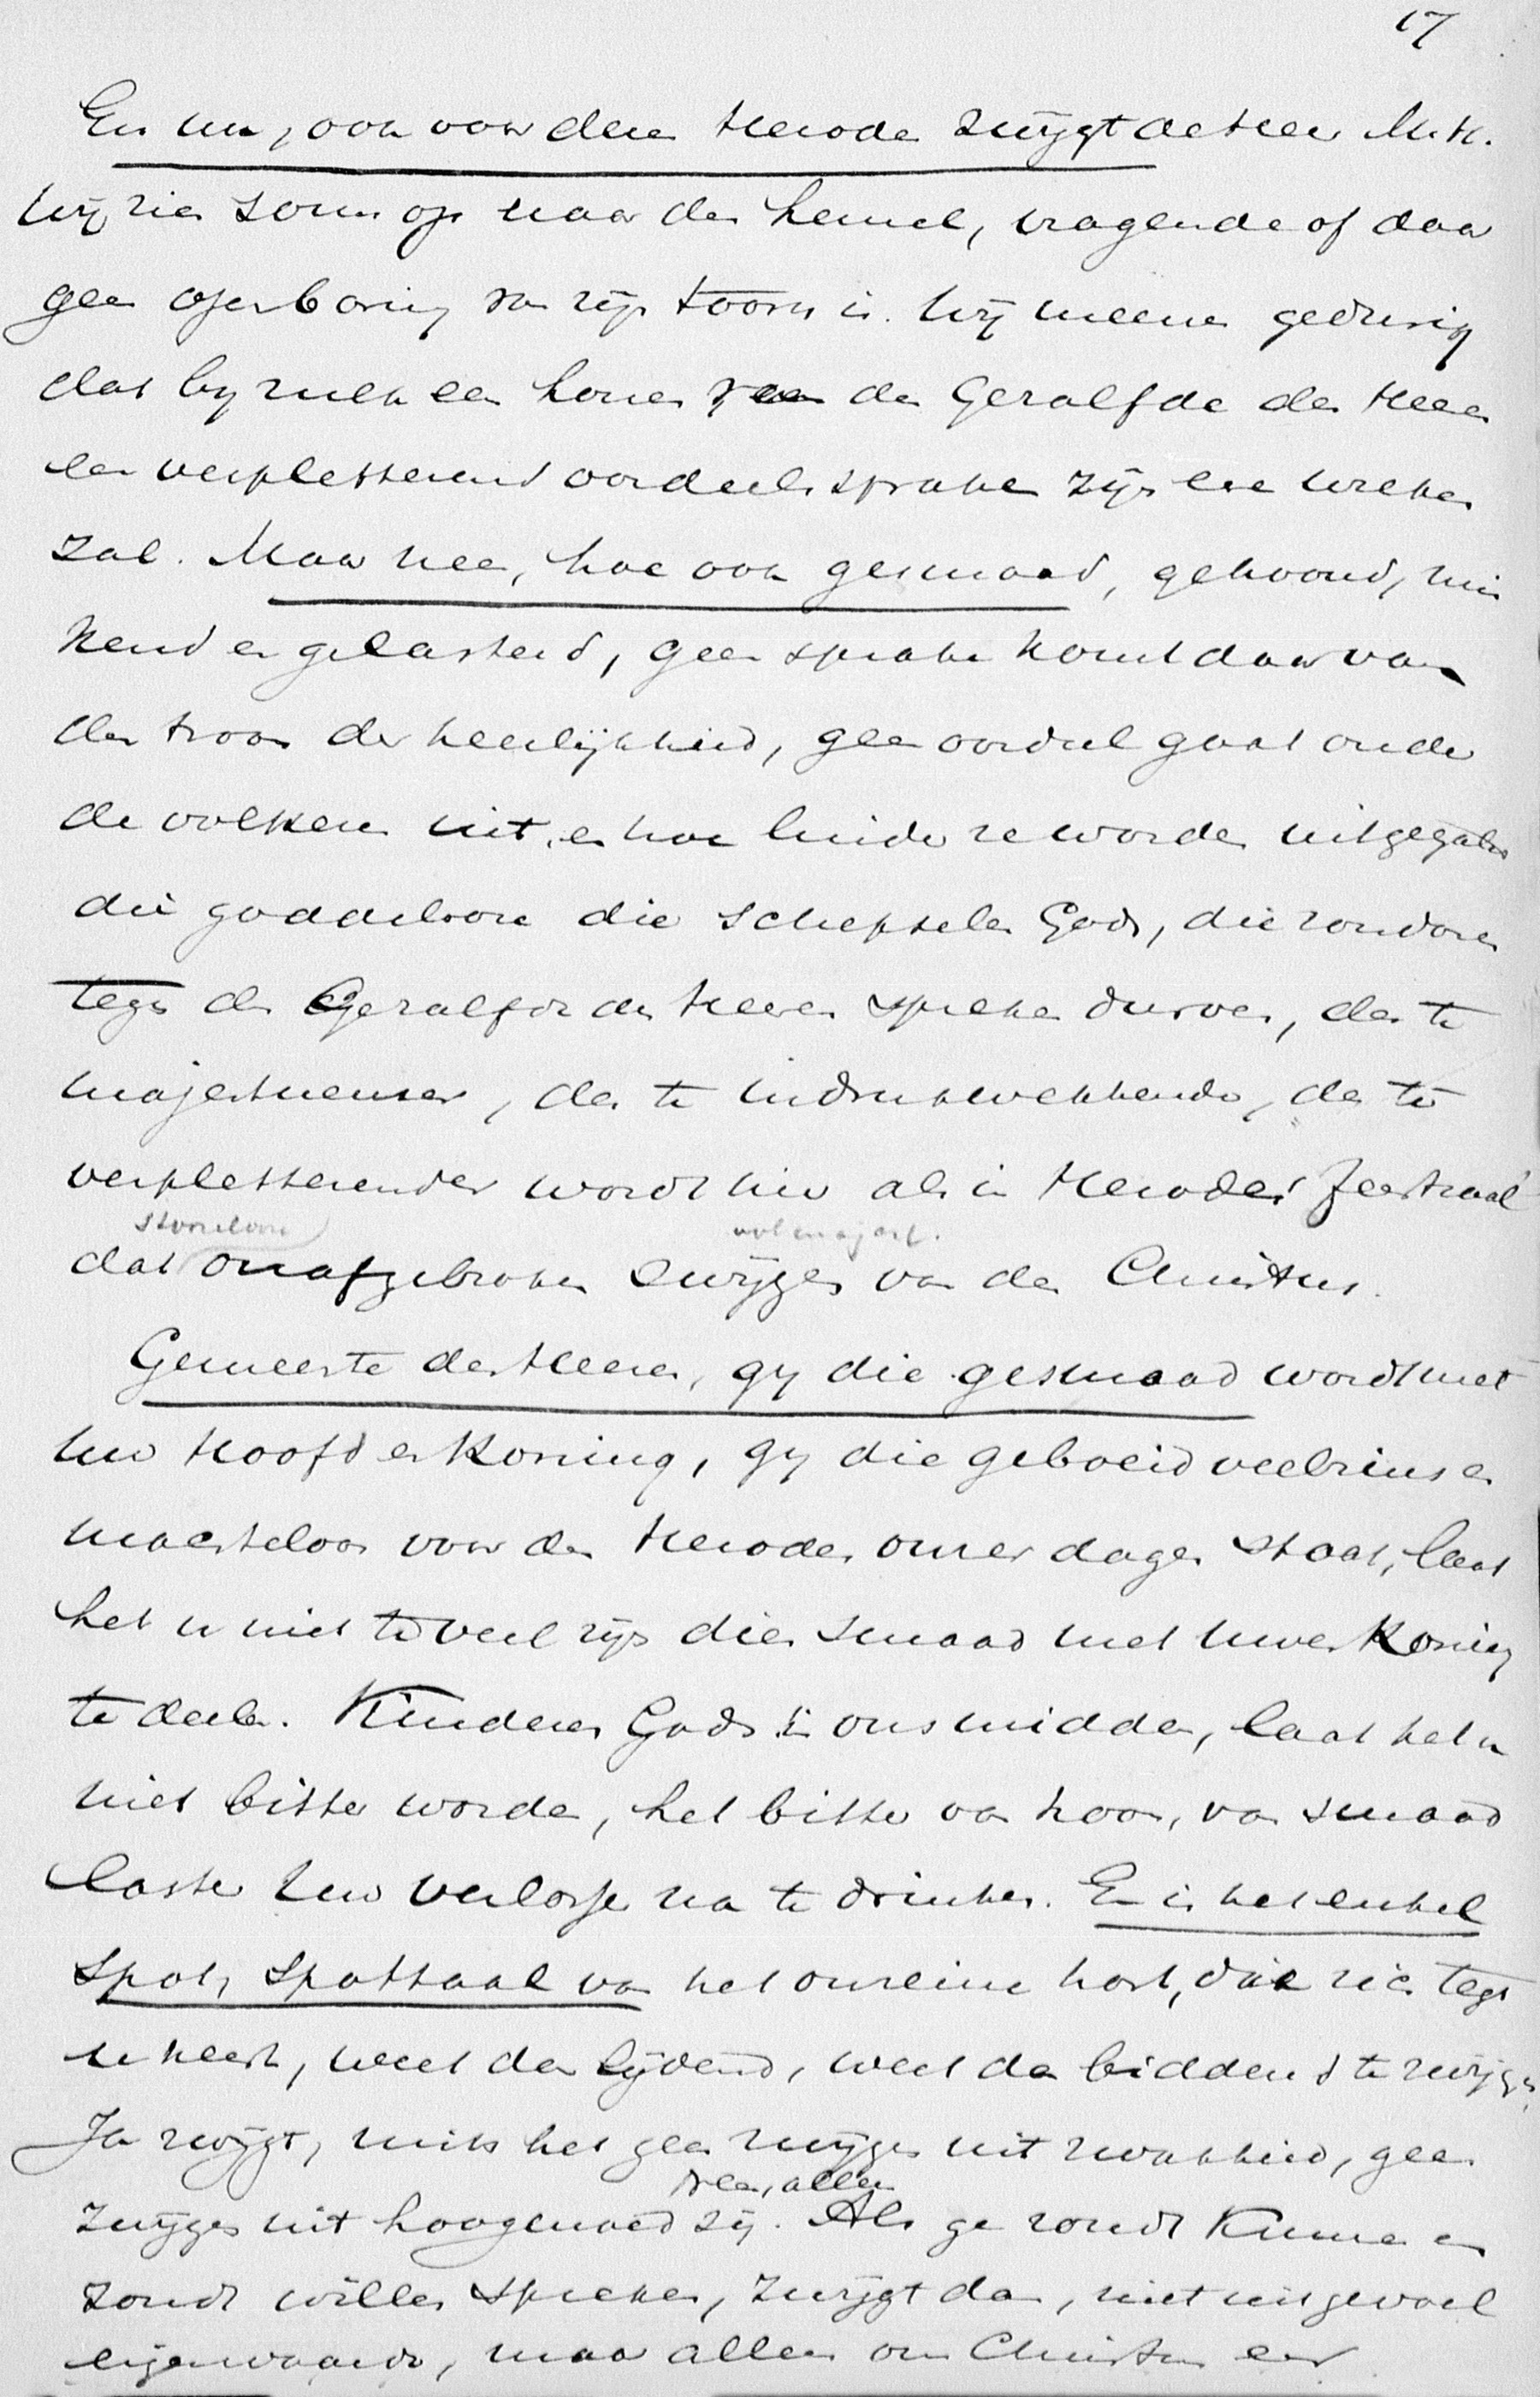 17
En nu, ook voor dien Herodes zwijgt de Heer M.H.
Wij zien soms op naar den hemel, vragende of daar
geen openbaring van zijn toorn is. Wij meenen gedurig
dat bij zulk een honen van den Gezalfde des Heeren
een verpletterend oordeelsspraken zijn eer wreken
zal. Maar neen, hoe ook gesmaad, gehoond, mis
kend en gelasterd, geen sprake komt daar van
den troon der heerlijkheid, geen oordeel gaat onder
de volken uit, en hoe luider ze worden uitgegalmd
die goddelooze die schepselen Gods, die zondaren
tegen den Gezalfde des Heeren spreken durven, des te
majestueuser, des te indrukwekkender, des te
verpletterender wordt hier als in Herodes feestzaal
stoorloos
dat onafgebroken zwijgen van den Christus.
Gemeente des Heeren, gij die gesmaad wordt met
uw Hoofd en Koning, gij die geboeid veelzins en
machteloos voor den Herodes onzer dagen staat, laat
het u niet te veel zijn dien smaad met uwen Koning
te deelen. Kinderen Gods in ons midden, laat het u
niet bitter worden, het bitter van hoon, van smaad
laster uw Verlosser na te drinken. En is het enkel
spot, spottaal van het onreine hart, die zich tegen
u keert, weet dan lijdend, weet dan biddend te zwijgen.
Ja zwijgt, mits het geen zwijgen uit zwakheid, geen
Neen, alleen
zwijgen uit hoogmoed zij. Als ge zoudt kunnen en
zoudt willen spreken, zwijgt dan, niet uit gevoel
eigenwaarde, maar alleen om Christus eer